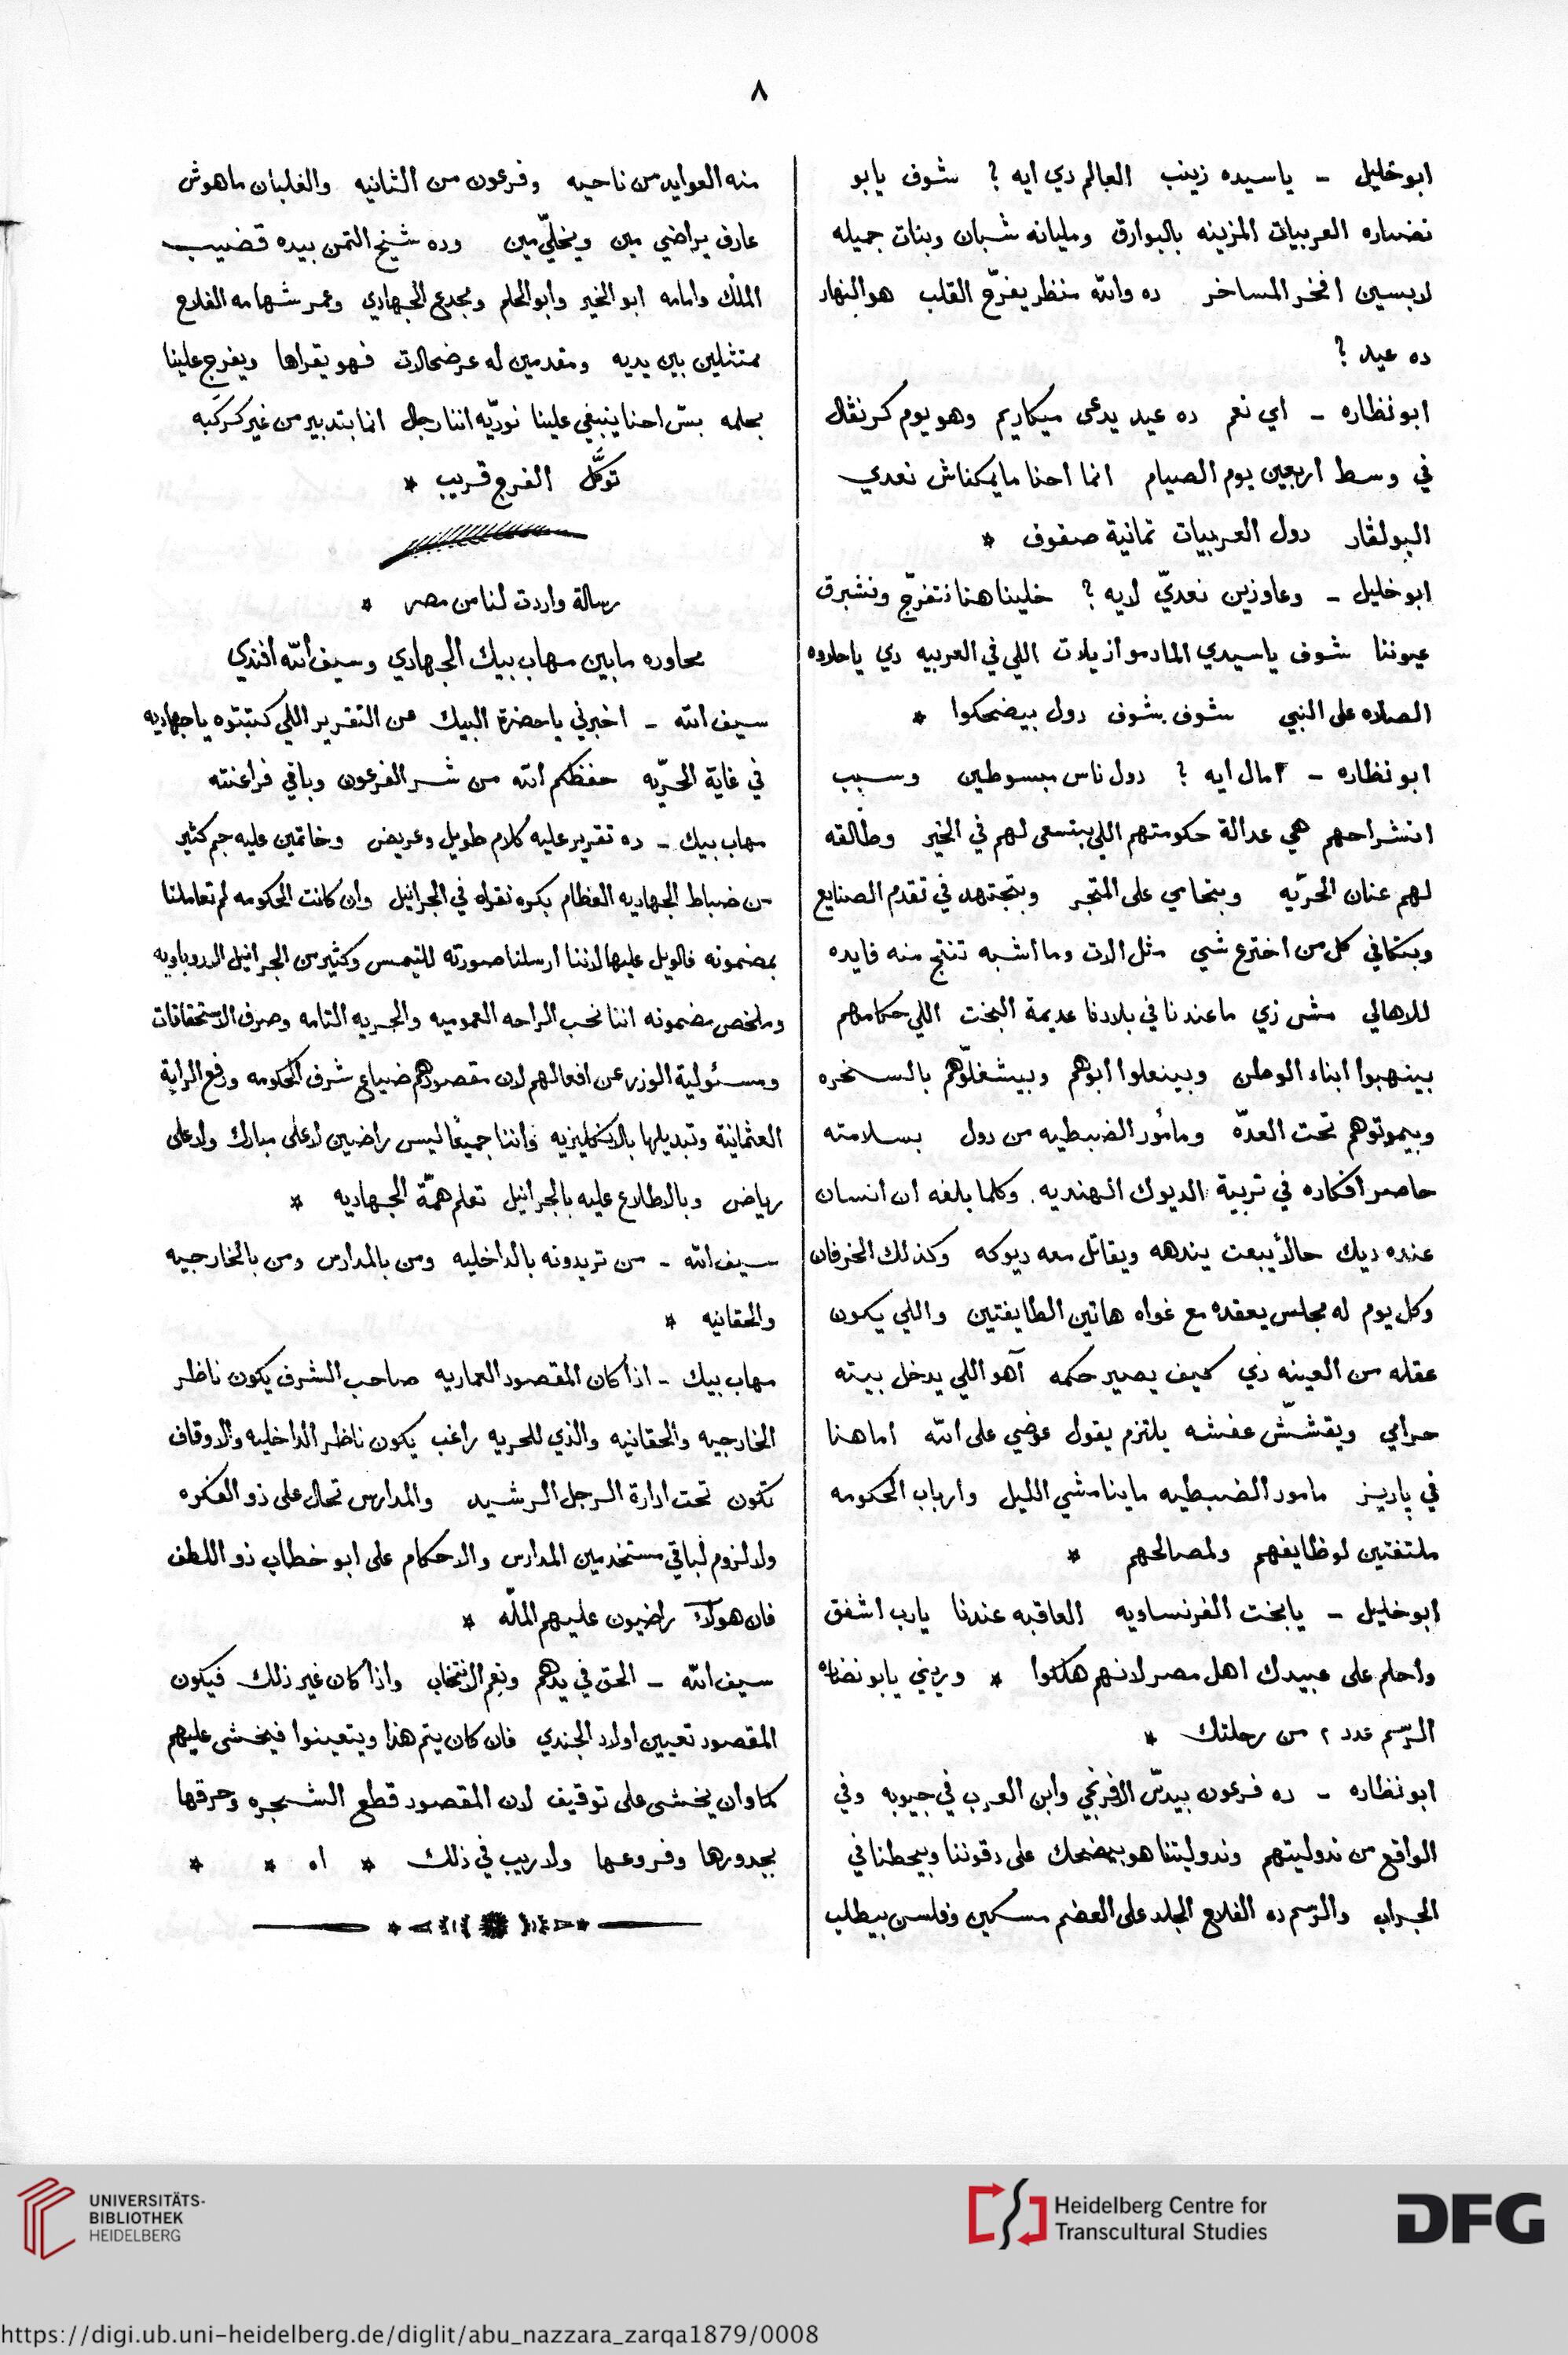 ٨
ابو خليل - ياسيده زينب العالم دي ايه ؟ شوف يابو
نضاره العربيات المزينه بالبوارق ومليانه شبان وبنات جميله
لابسين افخر المساخر ده والله منظر يفرّح القلب هو النهار
ده عيد ؟
ابو نظاره - اي نعم ده عيد يدعى ميكاريم وهو يوم كرنڤال
في وسط اربعين يوم الصيام انما احنا مايمكناش نعدي
البولڤار دول العربيات تمانية صفوف *
ابو خليل - وعاوزين نعديّ لايه ؟ خلينا هنا نتفرّج ونشبرق
عيوننا شوف ياسيدي المادموازيلات اللي في العربيه دي ياحلاوه
الصلاه على النبي شوف شوف دول بيضحكوا *
ابو نظاره - امال ايه ؟ دول ناس مبسوطين وسبب
انشراحهم هي عدالة حكومتهم اللي بتسعى لهم في الخير وطالقه
لهم عنان الحرّيه وبتحامي على المتجر وبتجتهد في تقدم الصنايع
وبتكافي كل من اخترع شي مثل الات وما اشبه تنتج منه فايده
للاهالي مش زي ماعندنا في بلادنا عديمة البخت اللي حكامهم
بينهبوا ابناء الوطن وبينعلوا ابوهم وبيشغلّوهم بالسخره
وبيموتوهم تحت العدّه ومأمور الضبطيه من دول بسلامته
حاصر افكاره في تربية الديوك الهنديه وكلما بلغه ان انسان
عنده ديك حالاً يبعت يندهه ويقاتل معه ديوكه وكذلك الخرفان
وكل يوم له مجلس يعقده مع غواه هاتين الطايفتين واللي يكون
عقله من العينه دي كيف يصير حكمه آهو اللي يدخل بيته
حرامي ويقشّش عفشه يلتزم يقول عوضي على الله اما هنا
في پاريز مامور الضبطيه ماينامشي الليل وارباب الحكومه
ملتفتين لوظايفهم ولمصالحهم *
ابو خليل - يابخت الفرنساويه العاقبه عندنا يارب اشفق
واحلم على عبيدك اهل مصر لانهم هلكوا * وريني يابو نضاره
الرّسم عدد ٢ من رحلتك *
ابو نظاره - ده فرعون بيدسّ الافرنجي وابن العرب في جيوبه وفي
الواقع من ندوليتهم وندوليتنا هو بيضحك على دقوننا وبيحطنا في
الجراب والرسم ده الفلاح الجلد على العضم مسكين وفلسن بيطلب
منه العوايد من ناحيه وفرعون من الثانيه والغلبان ماهوش
عارف يراضي مين ويخلّي مين وده شيخ التمن بيده قضيب
الملك وامامه ابو الخير وابو الحلم ومجدع الجهادي وعمر شهامه الفلاح
ممتثلين بين يديه ومقدمين له عرضحالات فهو يقراها ويفرج علينا
بحلمه بسّ احنا ينبغي علينا نورّيه اننا رجال انما بتدبير من غير كركبه
توكَّل الفرج قريب *
رسالة واردت لنا من مصر *
محاوره مابين مهاب بيك الجهادي وسيف الله افندي
سيف الله - اخبرني ياحضرة البيك عن التقرير اللي كتبتوه ياجهاديه
في غاية الحرّيه حفظكم الله من شر الفرعون وباقي فراعنته
مهاب بيك - ده تقرير عليه كلام طويل وعريض وخاتمين عليه جم كثير
من ضباط الجهاديه العظام بكره نقراه في الجرانيل وان كانت الحكومه لم تعاملنا
بمضمونه فالويل عليها لاننا ارسلنا صورته للتيمس وكثير من الجرانيل الاروباويه
وملخص مضمونه اننا نحب الراحه العموميه والحريه التامه وصرف الاستحقاقات
ومسئولية الوزير عن افعالهم لان مقصودهم ضياع شرف الحكومه ورفع الراية
العثمانية وتبديلها بالانكليزيه واننا جميعًا ليس راضين لا على مبارك ولا على
رياض وبالاطلاع عليه بالجرانيل تعلم همّة الجهاديه *
سيف الله - من تريدونه بالداخليه ومن بالمدارس ومن بالخارجيه
والحقانيه *
مهاب بيك - اذا كان المقصود العماريه صاحب الشرف يكون ناظر
الخارجيه والحقانيه والذي للحريه راغب يكون ناظر الداخليه والاوقاف
تكون تحت ادارة الرجل الرشيد والمدارس تحال على ذو الفكره
ولا لزوم لباقي مستخدمين المدارس والاحكام على ابو خطاب ذو اللطف
فان هولاء راضيون عليهم الملّه *
سيف الله - الحق في يدهم ونعم الانتخاب واذا كان غير ذلك فيكون
المقصود تعيين اولاد الجندي فان كان يتم هذا ويتعينوا فيخشى عليهم
كما وان يخشى على توقيف لان المقصود قطع الشجره وحرقها
بجدورها وفروعها ولا ريب في ذلك * اه * *
UNIVERSITÄTS-
BIBLIOTHEK
HEIDELBERG
Heidelberg Centre for
Transcultural Studies
DFG
https://digi.ub.uni-heidelberg.de/diglit/abu_nazzara_zarqa1879/0008